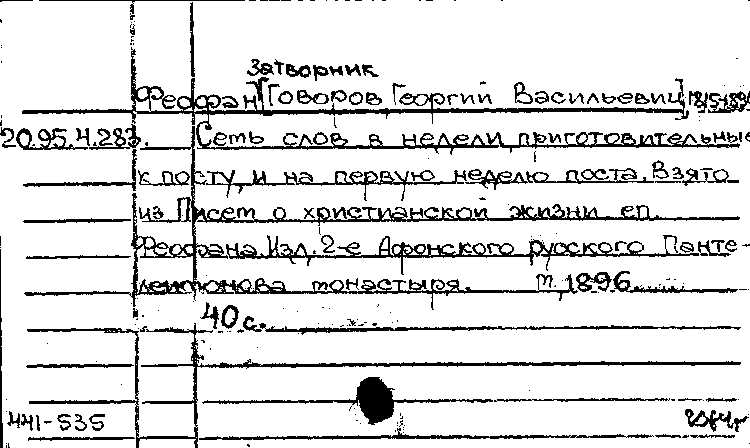 Затворник
Феофан [Говоров Георгий Васильевич],
20.95.4.283. Семь слов в недели, приготовительные
к посту, и на первую неделю поста. Взято
из Писем о христианской жизни еп.
Феофана. Изд. 2-е Афонского русского Панте-
леимонова монастыря. М, 1896.
40 с.
441-535